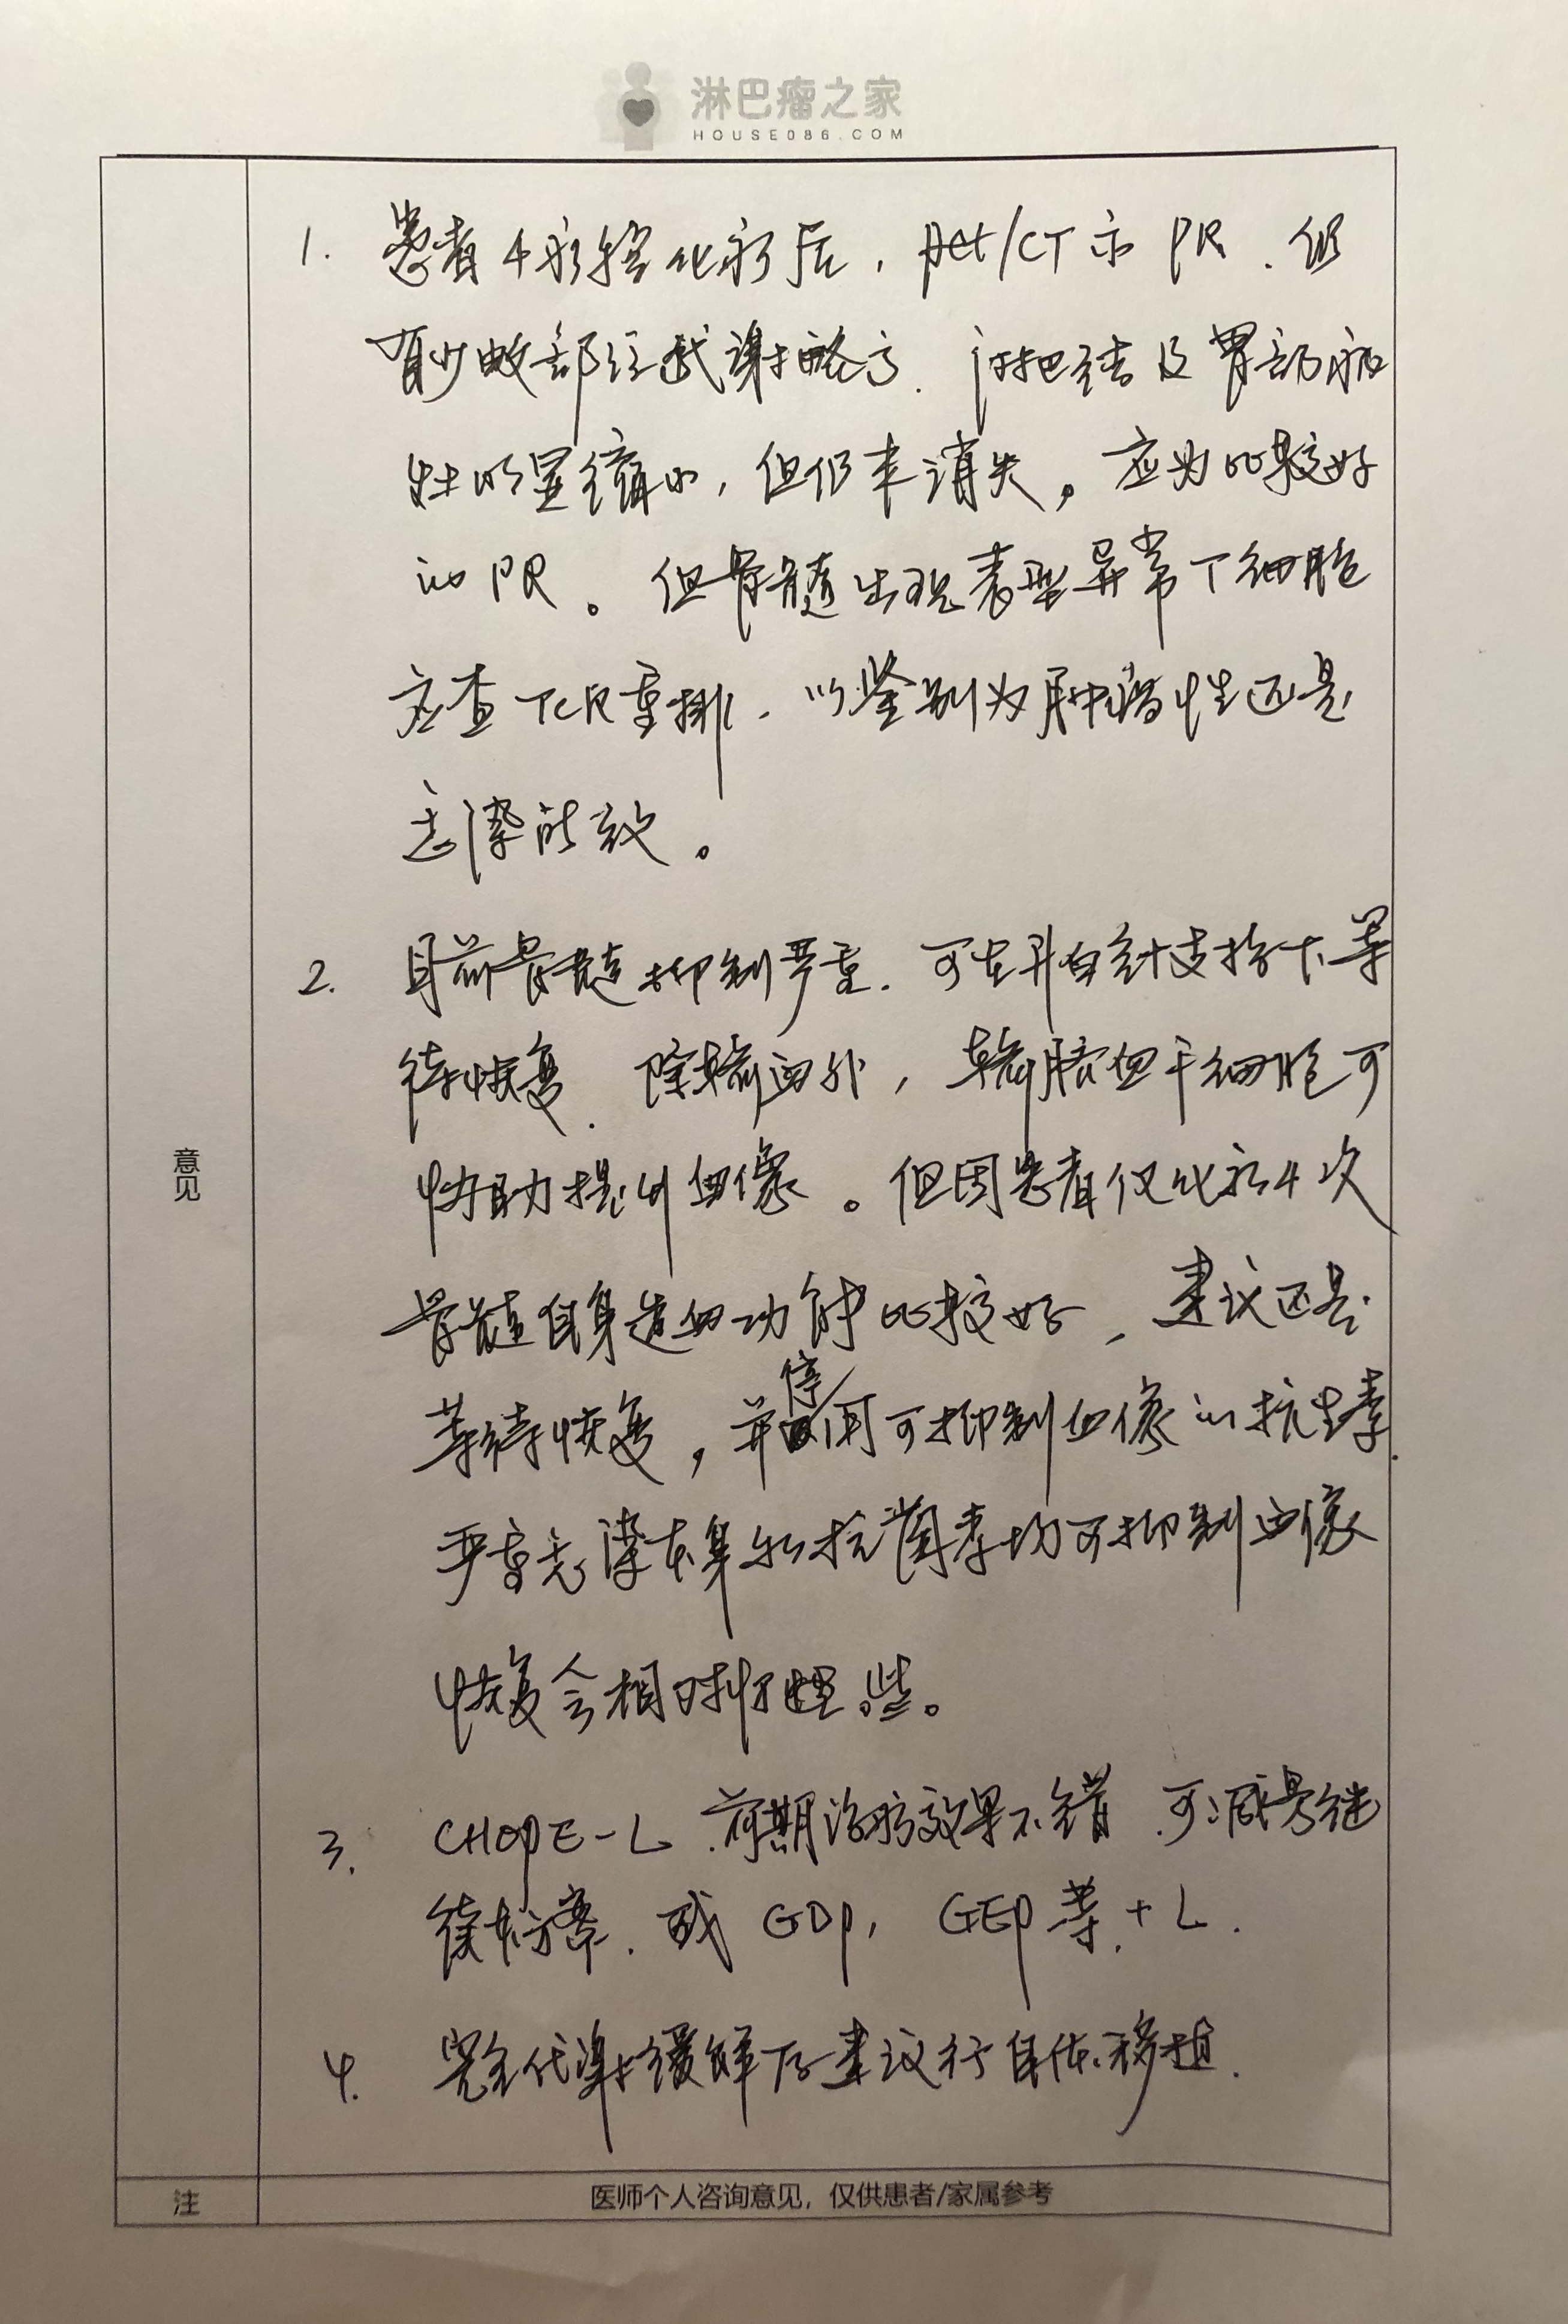 淋巴瘤之家
HOUSE086.COM
1. 患者4疗程化疗后，Pet/CT示PR．仍
有少数部位代谢略高．淋巴结及胃部病
灶明显缩小，但仍未消失。应为比较好
的PR。但骨髓出现表型异常T细胞
应查TCR重排．以鉴别为肿瘤性还是
感染所致。
2. 目前骨髓抑制严重．可在升白针支持下等
待恢复．除输血外，输脐血干细胞可
协助提升血像。但因患者仅化疗4次
骨髓自身造血功能比较好，建议还是
等待恢复，并停用可抑制血像的抗生素．
严重感染本身和抗菌素均可抑制血像
恢复会相对慢些。
3. CHOPE-L．前期治疗效果不错．可减量继
续本方案．或GDP, GEP等+L.
4. 完全代谢缓解后建议行自体移植．
意见
注
医师个人咨询意见，仅供患者/家属参考